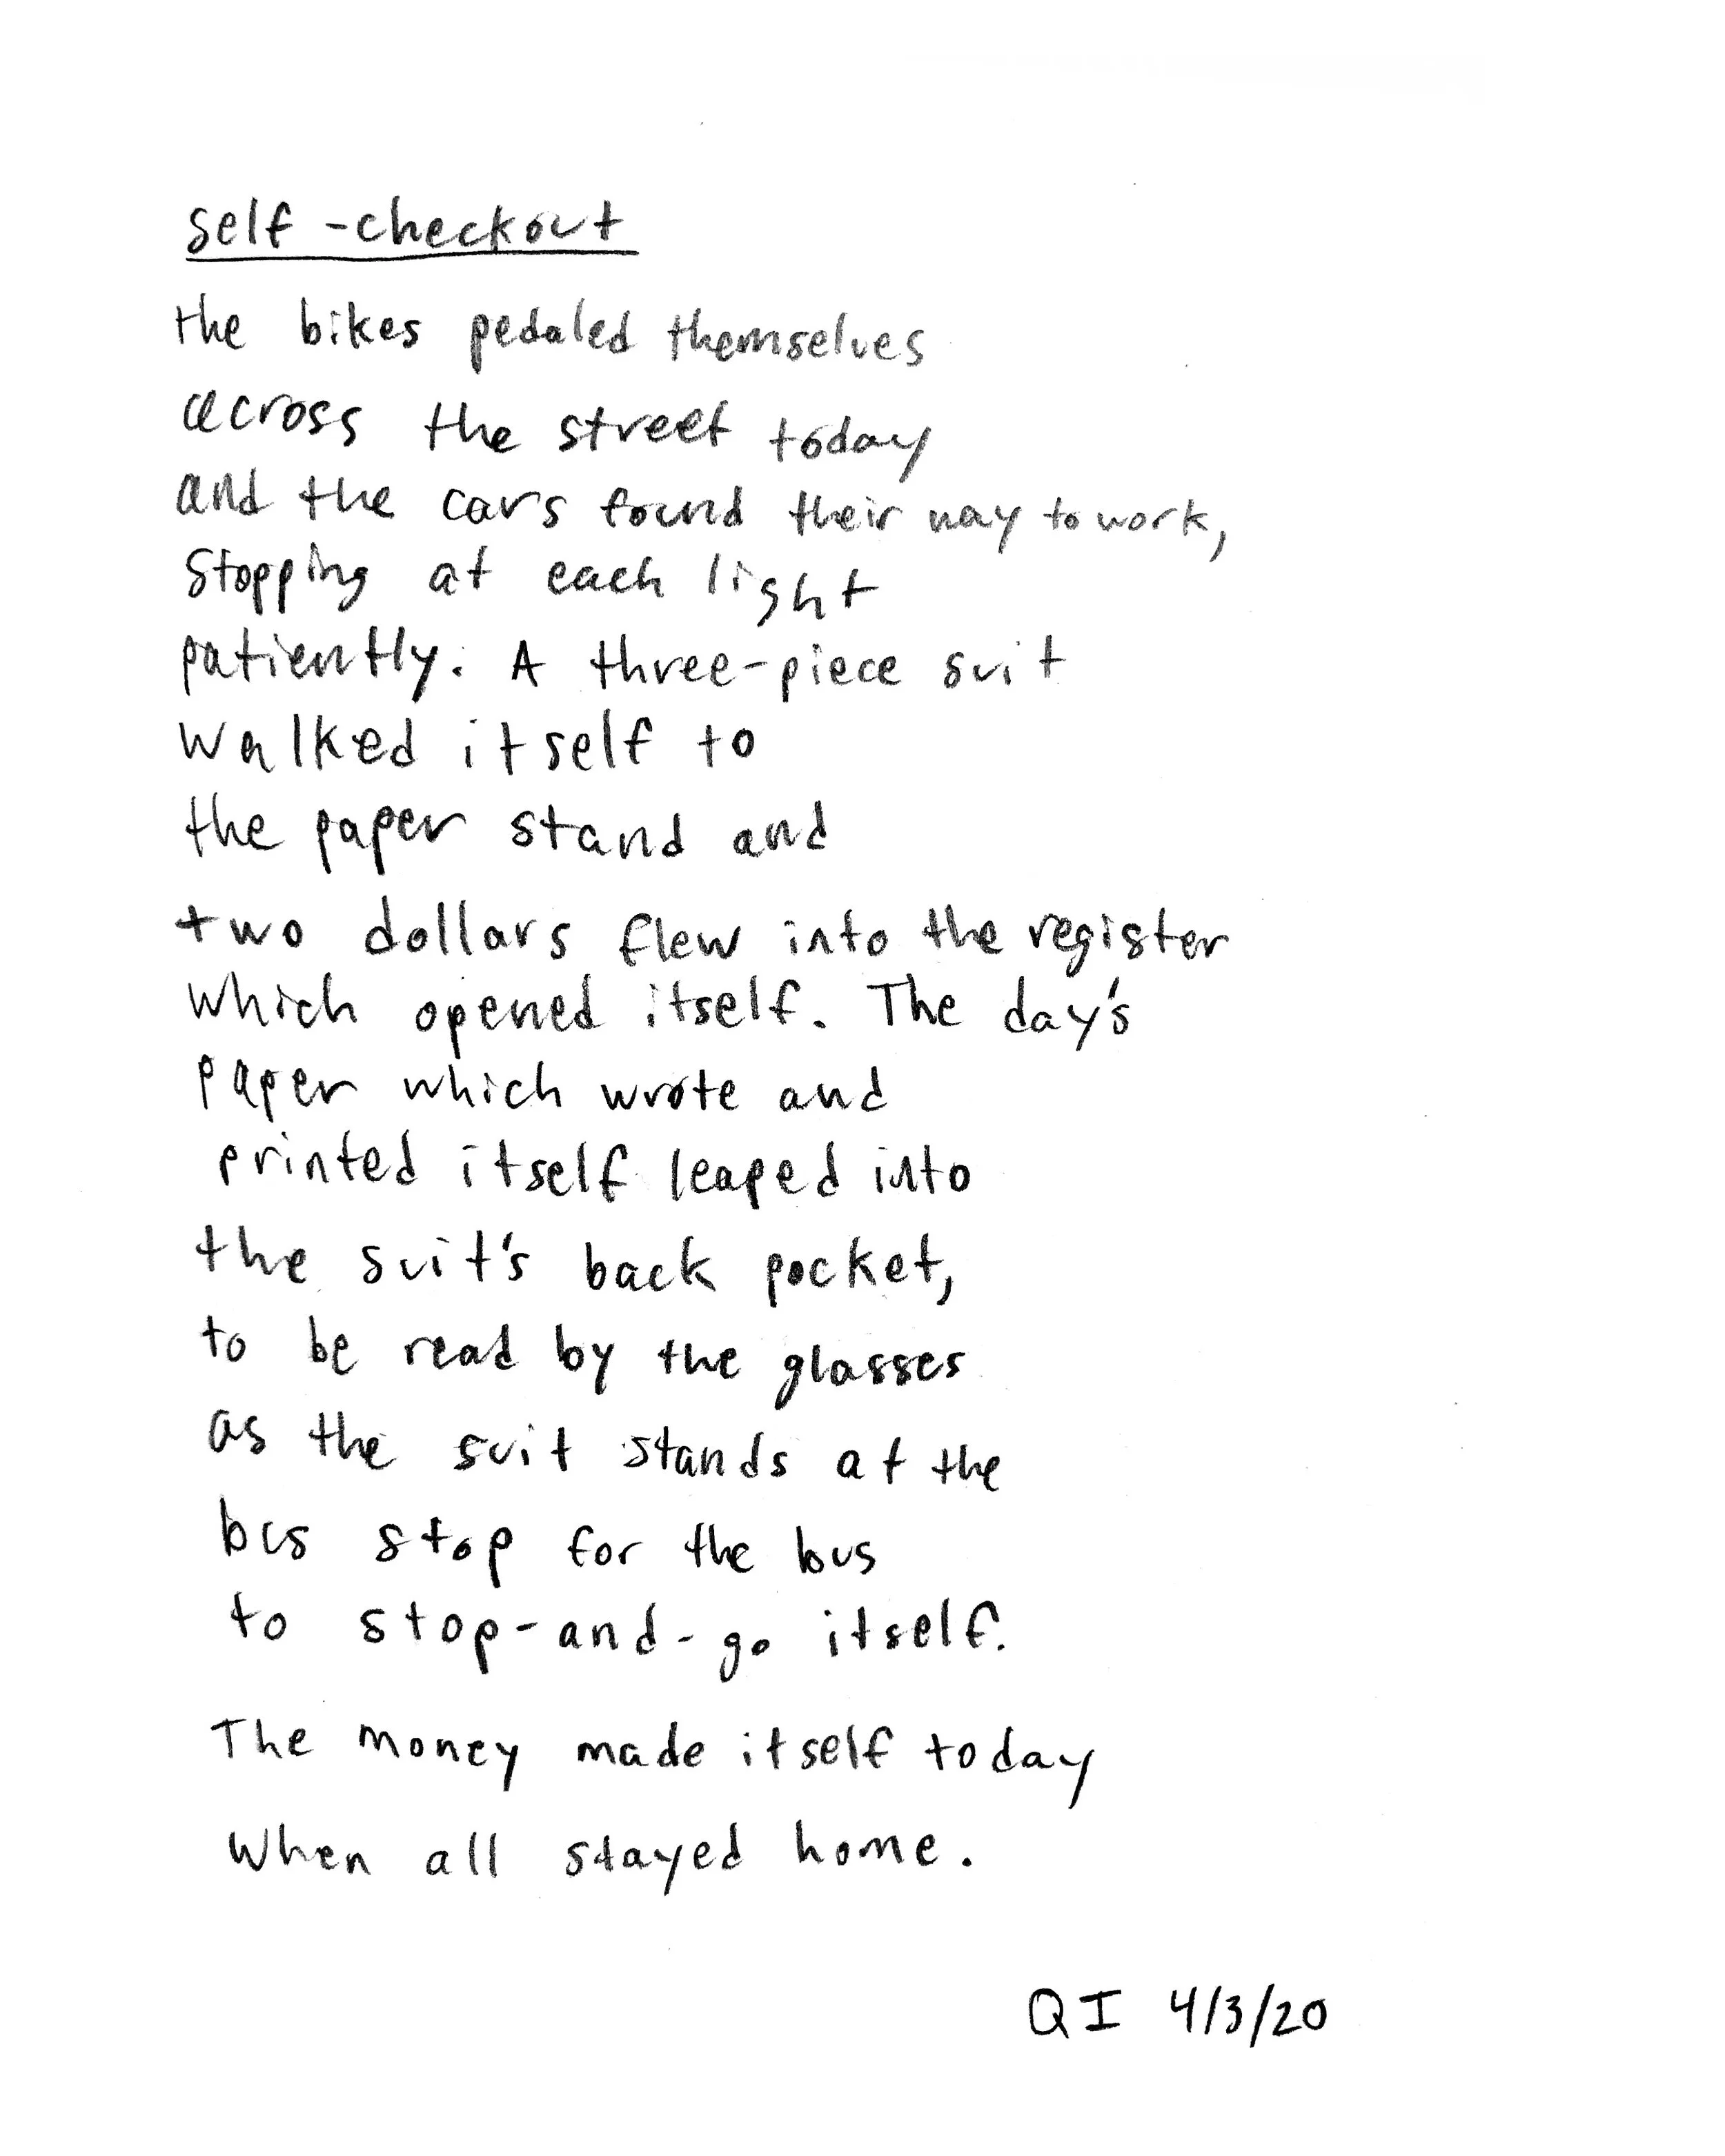 self-checkout
the bikes pedaled themselves
across the street today
and the cars found their way to work,
Stopping at each light
patiently. A three-piece suit
walked itself to
the paper stand and
two dollars flew into the register
which opened itself. The day's
paper which wrote and
printed itself leaped into
the suit's back pocket,
to be read by the glasses
as the suit stands at the
bus stop for the bus
to stop-and-go itself.
The money made itself today
When all stayed home.
QI 4/3/20